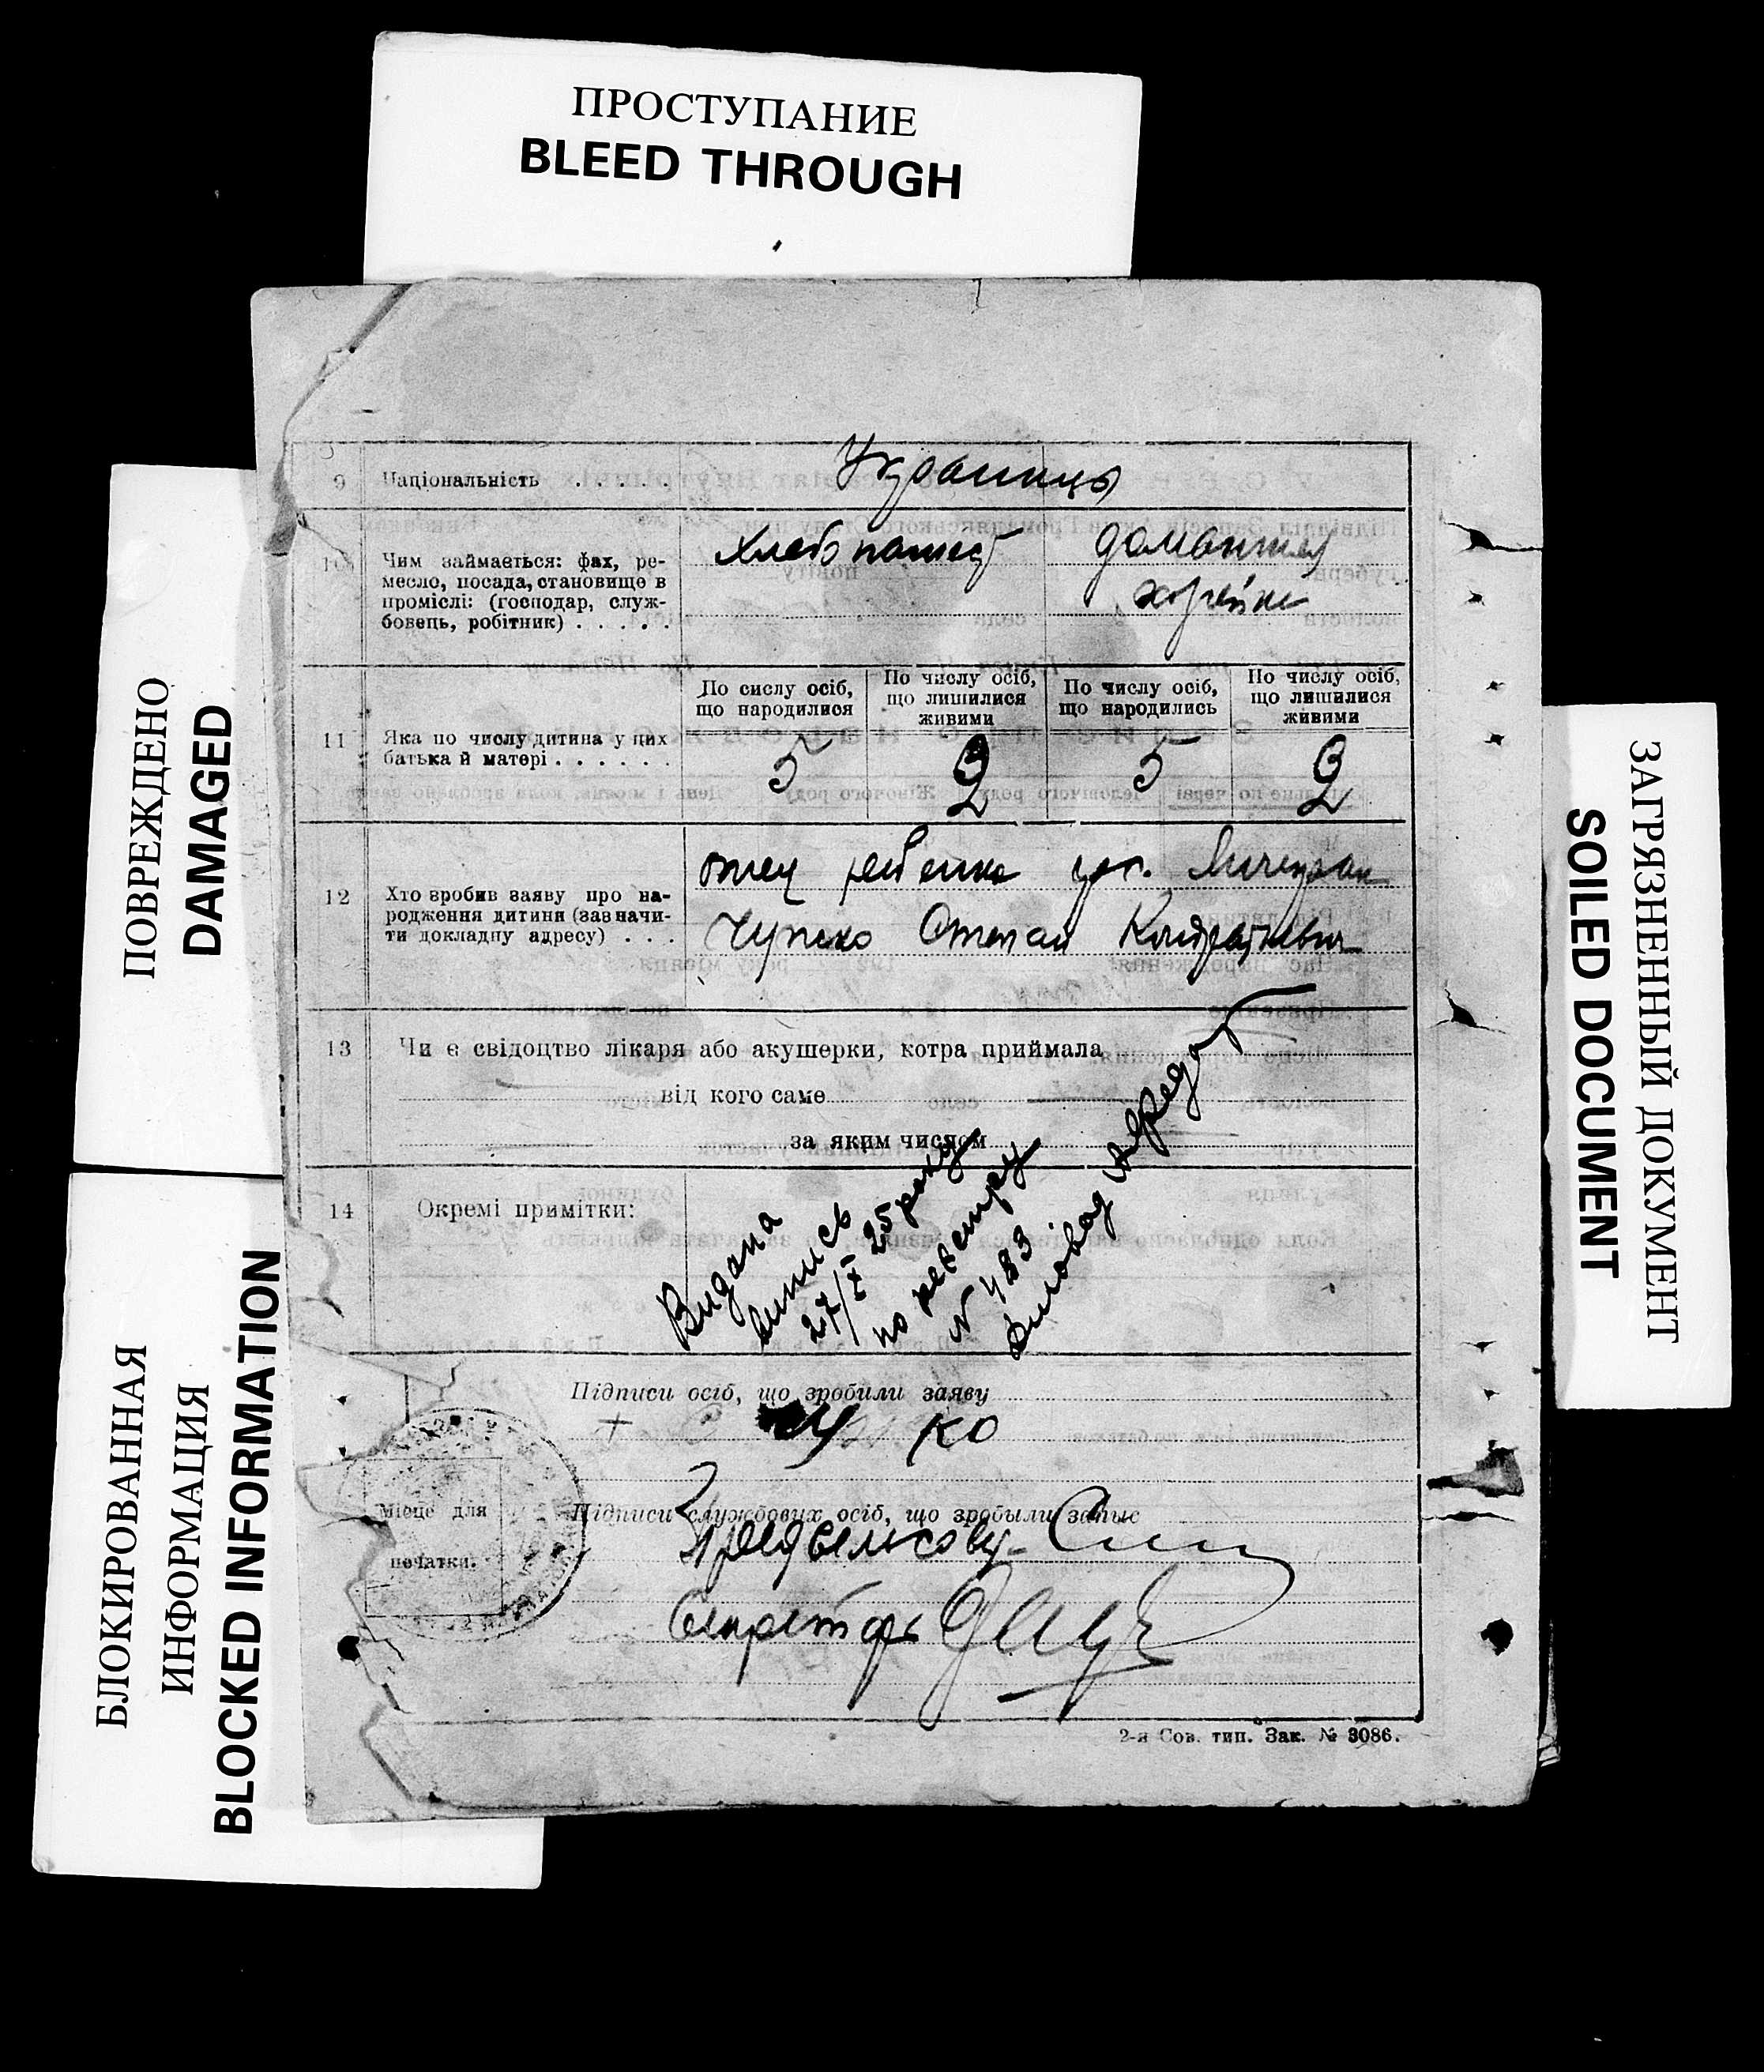 ПРОСТУПАНИЕ
BLEED THROUGH
ПОВРЕЖДЕНО
DAMAGED
БЛОКИРОВАННАЯ
ИНФОРМАЦИЯ
BLOCKED INFORMATION
ЗАГРЯЗНЕННЫЙ ДОКУМЕНТ
SOILED DOCUMENT
9 Національність . . . . . Украинцы
10 Чим займається: фах, ре-
месло, посада, становище в
проміслі: (господар, служ-
бовець, робітник) . . . . .
Хлебопашец
домашняя
По сислу осіб,
що народилися
По числу осіб,
що лишилися
живими
По числу осіб,
що народились
По числу осіб,
що лишилися
живими
11 Яка по числу дитина у цих
батька й матері . . . . . .
5 2 5 2
12 Хто зробив заяву про на-
родження дитини (зазначи-
ти докладну адресу) . . .
отец ребенка
Чупко Степан Кондратьевич
13 Чи є свідоцтво лікаря або акушерки, котра приймала
від кого саме
за яким числом
14 Окремі примітки:
Видана
випись
27/X 25 року
по реестру
N 483
Підписи осіб, що зробили заяву
ко
Підписи службових осіб, що зробыли запыс
Предсельсову
Секретарь
Місце для
печатки.
2-я Сов. тип. Зак. № 3086.